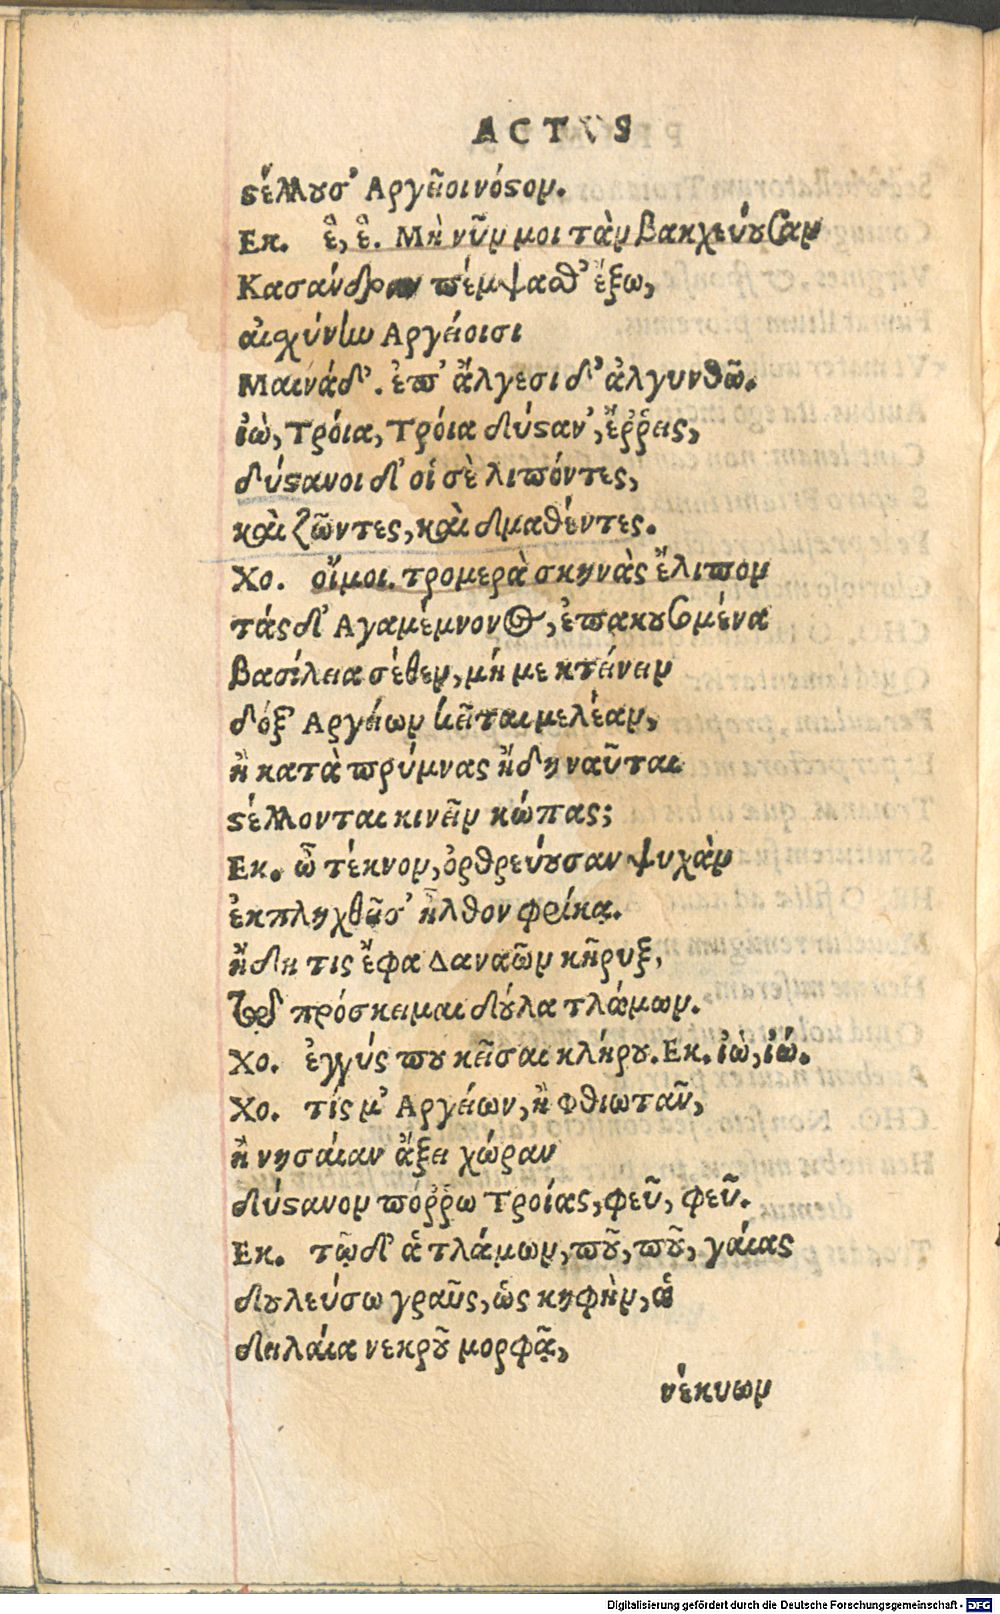 ACTVS
στέλλουσ' Αργεῖοι νόστον.
Εκ. ἒ, ἒ. Μή νῦν μοι τὰν βακχεύουσαν
Κασάνδραν πέμψαθ' ἔξω,
αἰσχύνην Αργείοισι
Μαινάδ'. ἐπ' ἄλγεσι δ' ἀλγυνθῶ.
ἰὼ, τρόια, τρόια δύσταν', ἔῤῥεις,
δύστανοι δ' οἱ σὲ λιπόντες,
καὶ ζῶντες, καὶ δμαθέντες.
Χο. οἴμοι. τρομερὰ σκηνὰς ἔλιπον
τάσδ' Αγαμέμνονος, ἐπακουσομένα
Βασίλεια σέθεν, μή με κτείνειν
δόξ' Αργείων κεῖται μελέαν,
ἢ κατὰ πρύμνας ἤδη ναῦται
στέλλονται κινεῖν κώπας;
Εκ. ὦ τέκνον, ὀρθρεύουσαν ψυχὰν
ἐκπληχθεῖσ' ἦλθον φρίκᾳ.
ἤδη τις ἔφα Δαναῶν κῆρυξ,
τῷ πρόσκειμαι δούλα τλάμων.
Χο. ἐγγύς που κεῖσαι κλήρου. Εκ. ἰώ, ἰώ.
Χο. τίς μ' Αργείων, ἢ Φθιωτᾶν,
ἢ νησαίαν ἄξει χώραν
δύστανον πόῤῥω Τροίας, φεῦ, φεῦ.
Εκ. τῷ δ' ἁ τλάμων, ποῦ, ποῦ, γαίας
δουλεύσω γραῦς, ὡς κηφὴν, ἁ
δειλαία νεκροῦ μορφᾷ,
νέκυων
Digitalisierung gefördert durch die Deutsche Forschungsgemeinschaft - DFG